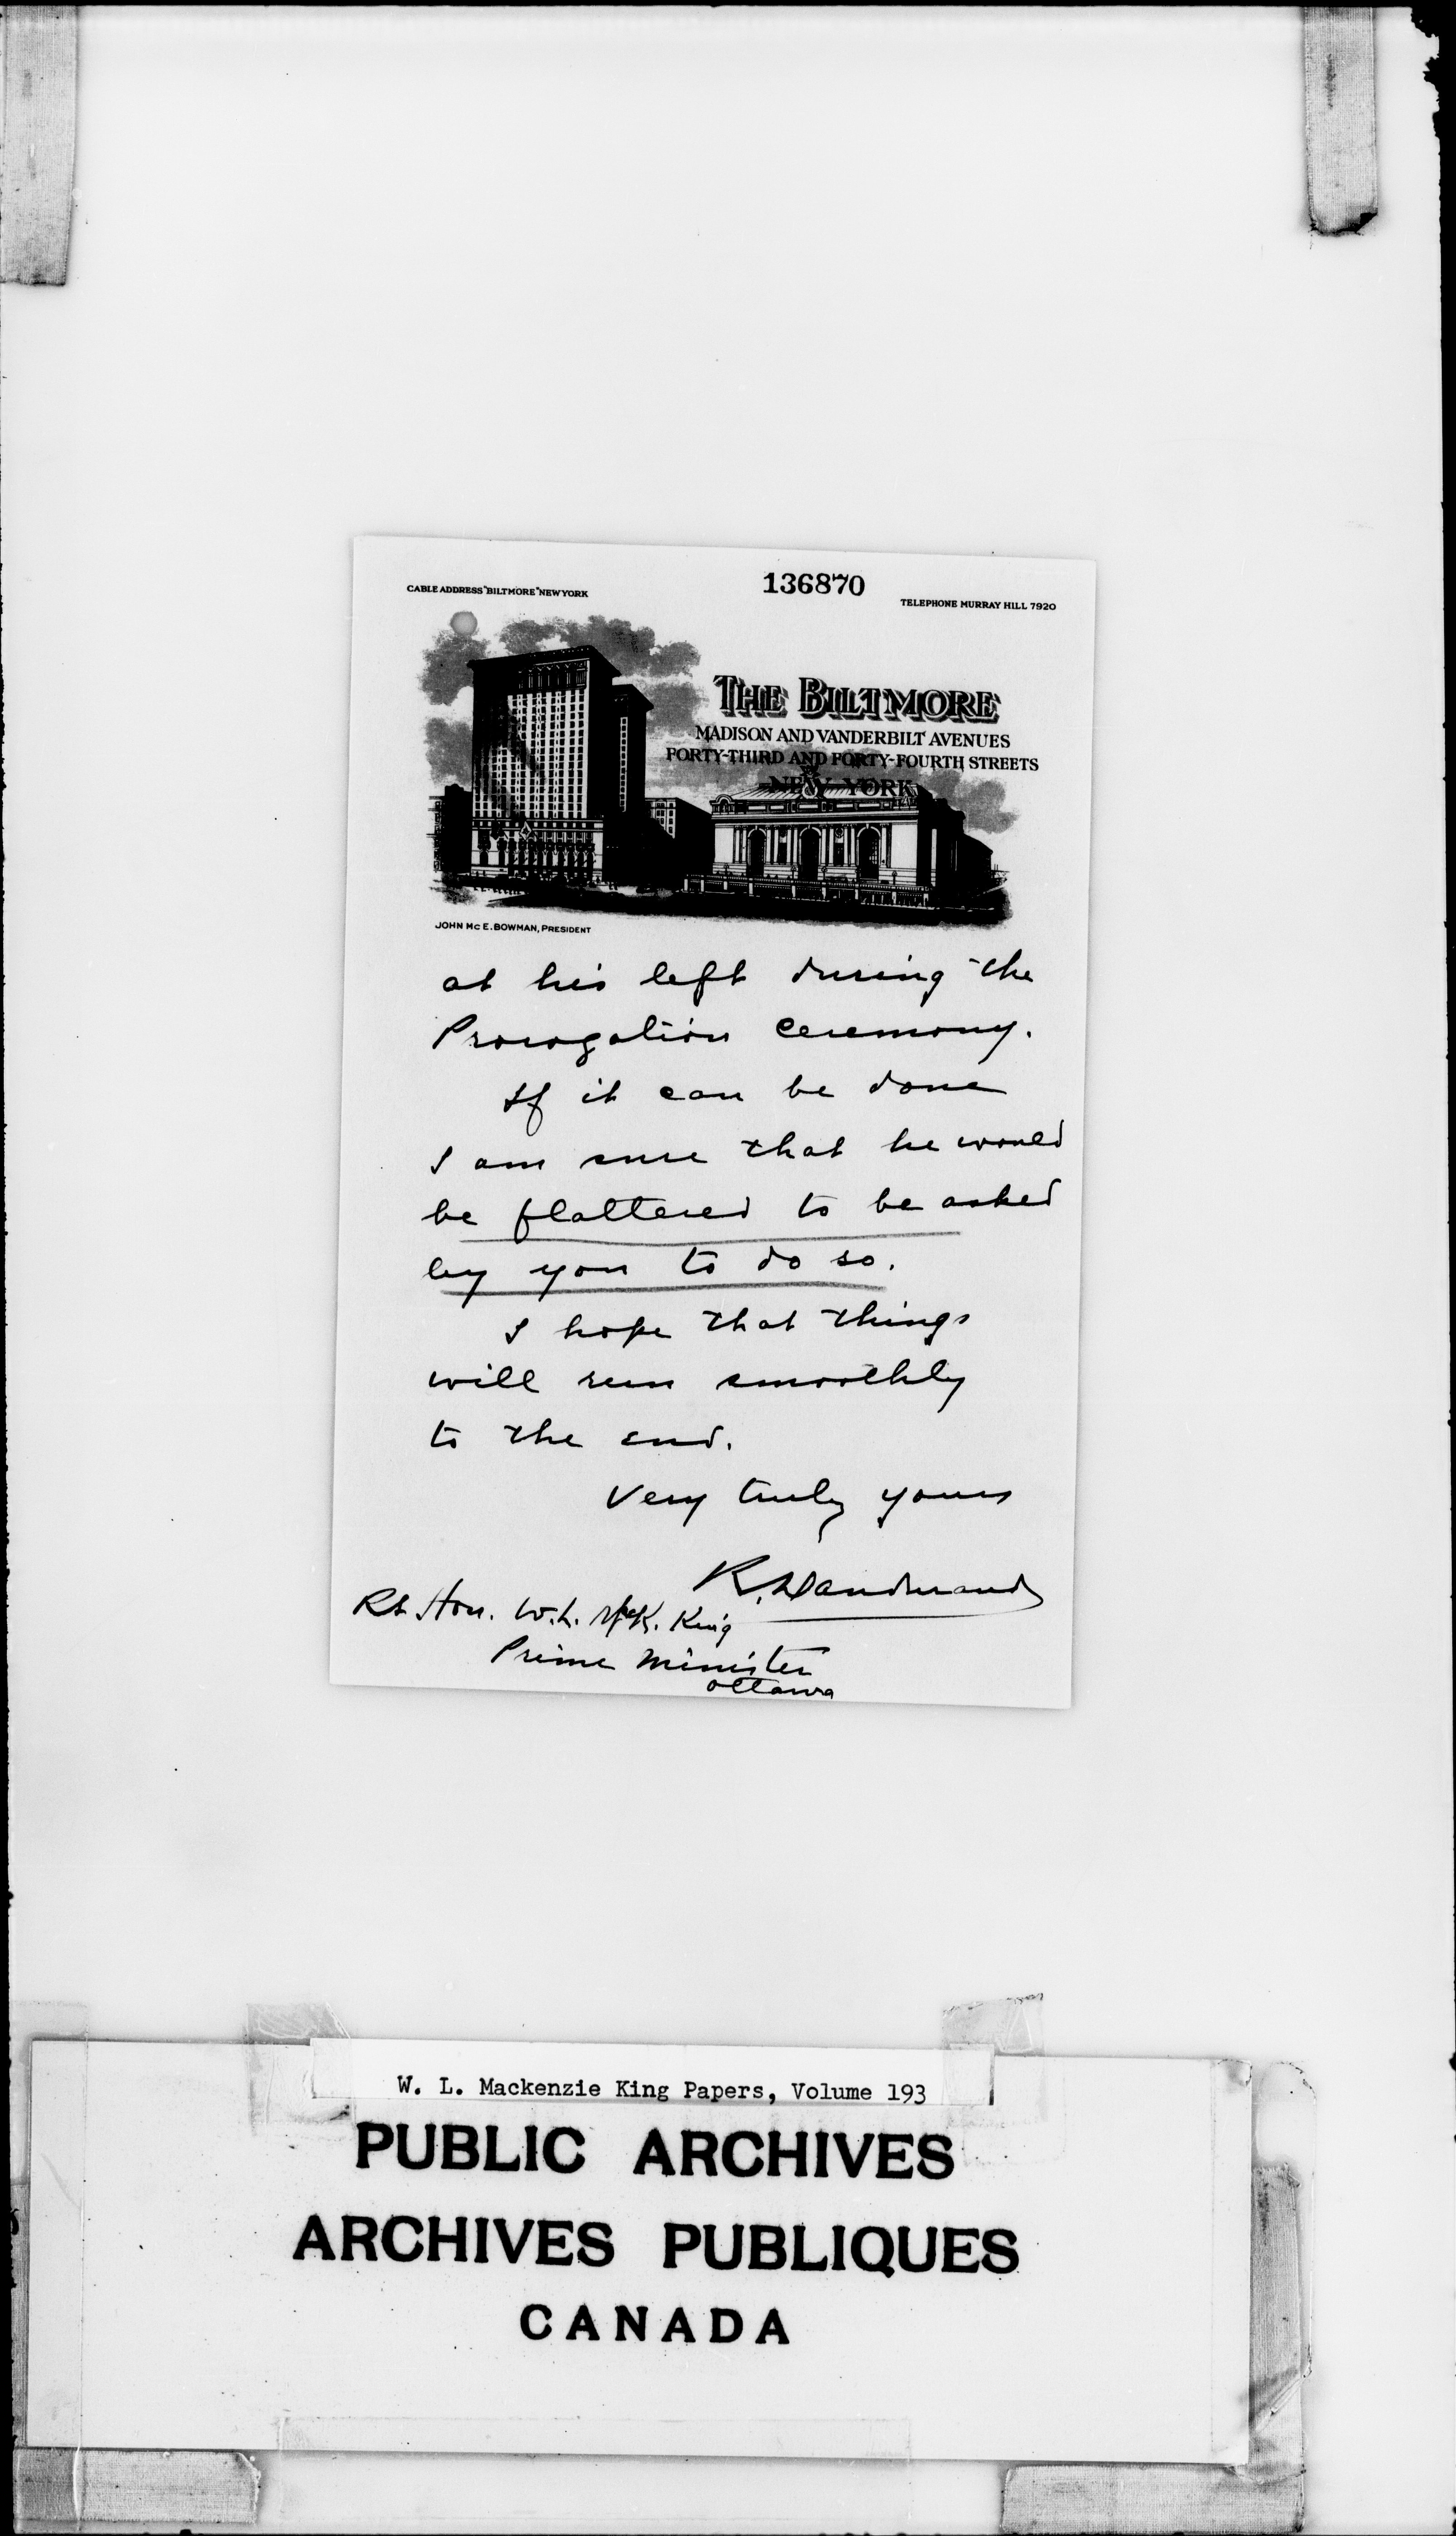 136870
CABLE ADDRESS "BILTMORE" NEW YORK
TELEPHONE MURRAY HILL 7920
THE BILTMORE
MADISON AND VANDERBILT AVENUES
FORTY-THIRD AND FORTY-FOURTH STREETS
NEW YORK
JOHN McE. BOWMAN, PRESIDENT
at his left during the
Prorogation ceremony.
If it can be done
I am sure that he would
be flattered to be asked
by you to do so.
I hope that things
will run smoothly
to the end.
Very truly yours
R. Dandurand
Rt Hon. W.L. McK. King
Prime Minister
Ottawa
W. L. Mackenzie King Papers, Volume 193
PUBLIC ARCHIVES
ARCHIVES PUBLIQUES
CANADA